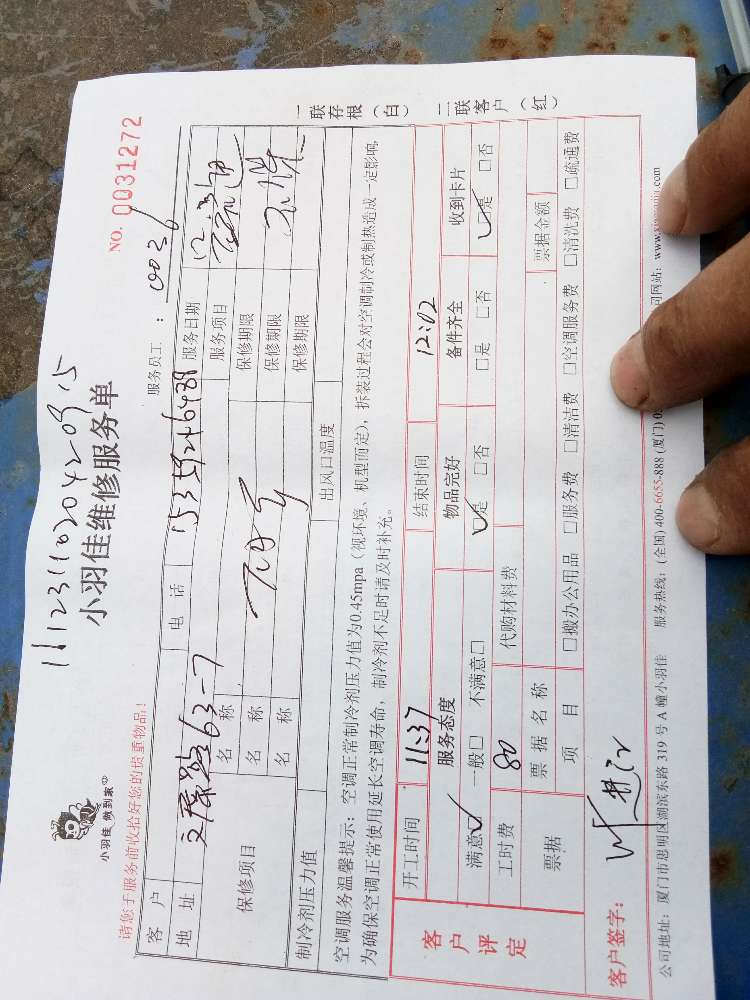 1112311020420915
小羽佳 做到家
小羽佳维修服务单
NO. 0031272
请您于服务前收拾好您的贵重物品!
服务员工: 0026
客户 电话 服务日期 12.
地址 63-7 服务项目 疏通
保修项目 名称 保修期限
名称 保修期限
名称 保修期限
制冷剂压力值 出风口温度
空调服务温馨提示:空调正常制冷剂压力值为0.45mpa(视环境、机型而定),拆装过程会对空调制冷或制热造成一定影响,
为确保空调正常使用延长空调寿命,制冷剂不足时请及时补充。
一联存根(白)
二联客户(红)
客户评定
开工时间 11:37 结束时间 12:02
服务态度 物品完好 备件齐全 收到卡片
满意☑ 一般□ 不满意□ ☑是 □否 □是 □否 ☑是 □否
工时费 80 代购材料费
票据 票据名称 票据金额
项目 □搬办公用品 □服务费 □清洁费 □空调服务费 □清洗费 □疏通费
客户签字:
公司地址:厦门市思明区湖滨东路 319 号 A 幢小羽佳 服务热线:(全国) 400-6655-888 (厦门) 司网站: